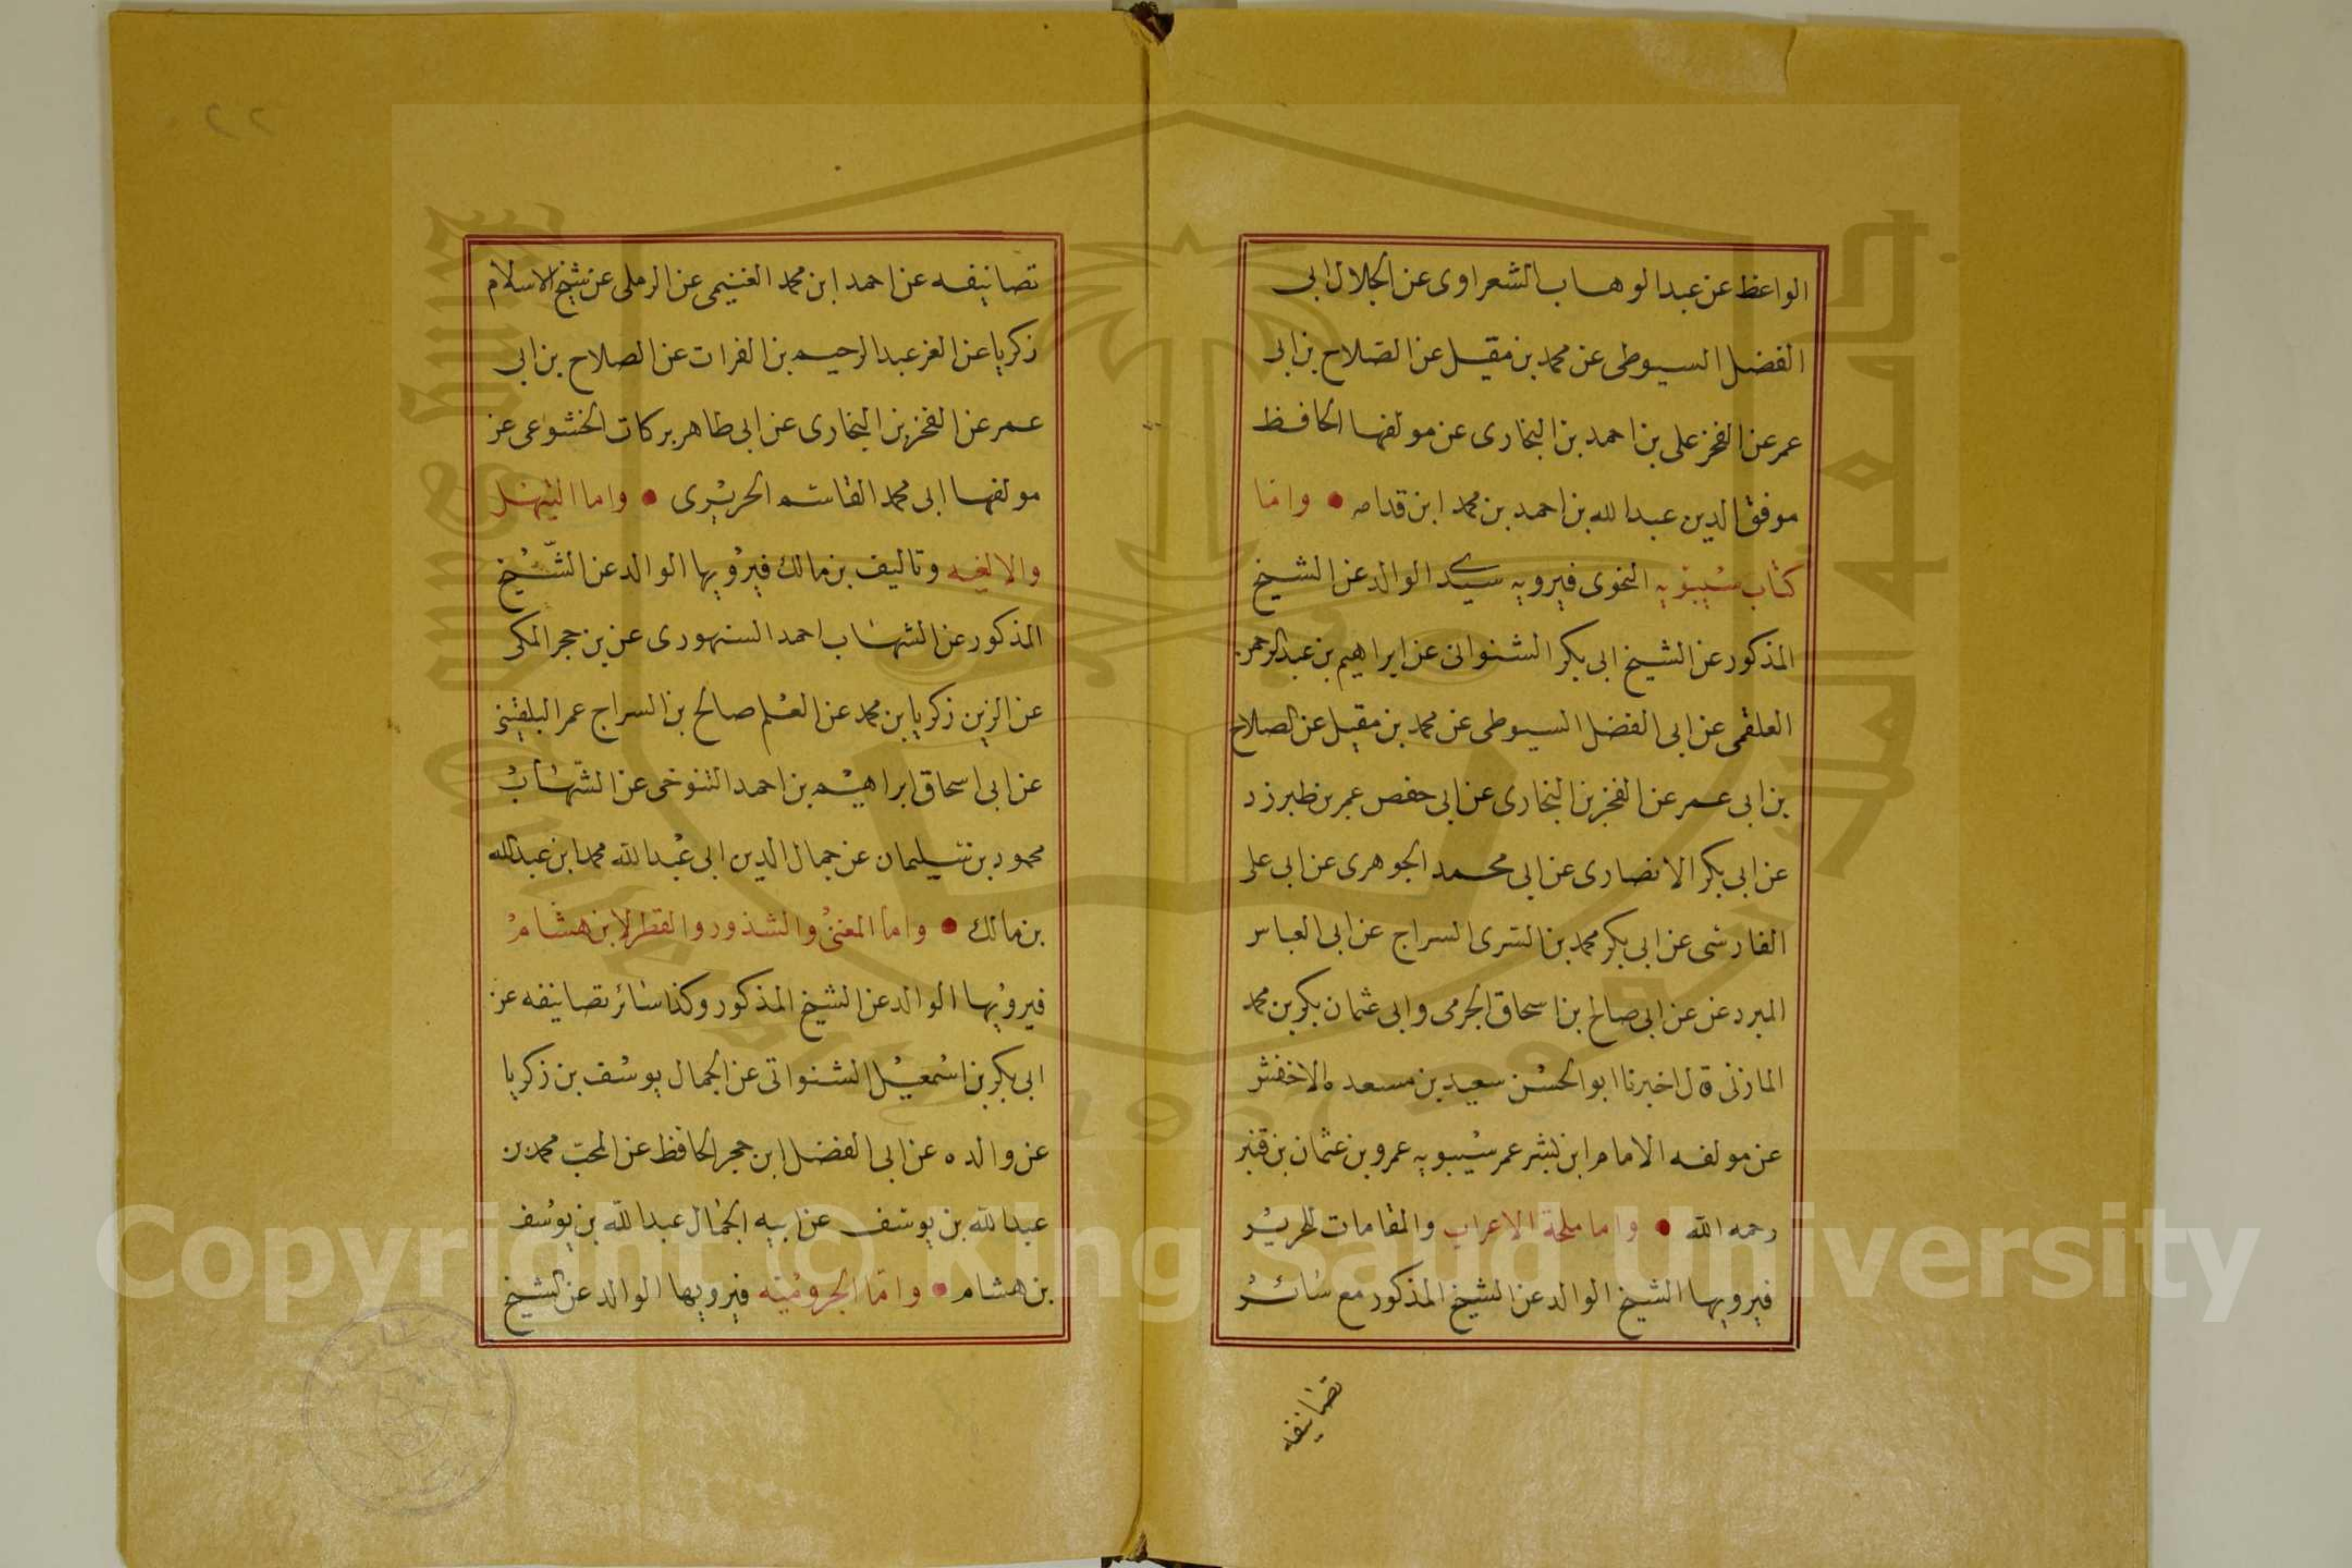 الواعظ عن عبد الوهاب الشعراوى عن الجلال ابى
الفضل السيوطى عن محمد بن مقيل عن الصلاح بن ابى
عمر عن الفخر على بن احمد بن البخارى عن مولفها الحافظ
موفق الدين عبد الله بن احمد بن محمد ابن قدامه • واما
كتاب سيبويه النحوى فيرويه سيدى الوالد عن الشيخ
المذكور عن الشيخ ابى بكر الشنوانى عن ابراهيم بن عبد الرحمن
العلقمى عن ابى الفضل السيوطى عن محمد بن مقيل عن الصلاح
بن ابى عمر عن الفخر بن البخارى عن ابى حفص عمر بن طبرزد
عن ابى بكر الانصارى عن ابى محمد الجوهرى عن ابى على
الفارسى عن ابى بكر محمد بن السرى السراج عن ابى العباس
المبرد عن عن ابى صالح بن اسحاق الجرمى وابى عثمان بكر بن محمد
المازنى قال اخبرنا ابو الحسن سعيد بن مسعده الاخفش
عن مولفه الامام ابن بشر عمر سيبويه عمرو بن عثمان بن قنبر
رحمه الله • واما ملحة الاعراب والمقامات للحريرى
فيرويها الشيخ الوالد عن الشيخ المذكور مع سائر
تصانيفه
تصانيفه عن احمد ابن محمد الغنيمى عن الرملى عن شيخ الاسلام
زكريا عن العز عبد الرحيم بن الفرات عن الصلاح بن ابى
عمر عن الفخر بن البخارى عن ابى طاهر بركات الخشوعى عن
مولفها ابى محمد القاسم الحريرى • واما التسهيل
والالفيه وتاليف بن مالك فيرويها الوالد عن الشيخ
المذكور عن الشهاب احمد السنهورى عن بن حجر المكى
عن الزين زكريا بن محمد عن العلم صالح بن السراج عمر البلقينى
عن ابى اسحاق ابراهيم بن احمد التنوخى عن الشهاب
محمود بن سليمان عن جمال الدين ابى عبد الله محمد ابن عبد الله
بن مالك • واما المغنى والشذور والقطر لابن هشام
فيرويها الوالد عن الشيخ المذكور وكذا سائر تصانيفه عن
ابى بكر بن اسمعيل الشنوانى عن الجمال يوسف بن زكريا
عن والده عن ابى الفضل ابن حجر الحافظ عن المحب محمد بن
عبد الله بن يوسف عن ابيه الجمال عبد الله بن يوسف
بن هشام • واما الجروميه فيرويها الوالد عن الشيخ
٢٢
Copyright © King Saud University